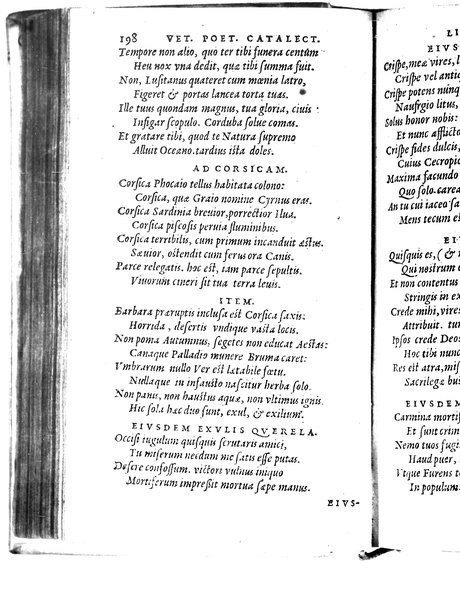 198 VET. POET. CATALECT.
Tempore non alio, quo ter tibi funera centũm
Heu nox vna dedit, quæ tibi summa fuit.
Non, Lusitanus quateret cum mœnia latro,
Figeret & portas lancea torta tuas.
Ille tuus quondam magnus, tua gloria, ciuis
Infigar scopulo. Corduba solue comas.
Et gratare tibi, quod te Natura supremo
Alluit Oceano. tardius ista doles.
AD CORSICAM.
Corsica Phocaio tellus habitata colono:
Corsica, quæ Graio nomine Cyrnus eras.
Corsica Sardinia breuior, porrectior Ilua.
Corsica piscosis peruia fluminibus.
Corsica terribilis, cum primum incanduit æstus.
Sæuior, ostendit cum ferus ora Canis.
Parce relegatis. hoc est, tam parce sepultis.
Viuorum cineri sit tua terra leuis.
ITEM.
Barbara præruptis inclusa est Corsica saxis:
Horrida, desertis vndique vasta locis.
Non poma Autumnus, segetes non educat Aestas:
Canaque Palladio munere Bruma caret:
Vmbrarum nullo Ver est lætabile fœtu.
Nullaque in infausto nascitur herba solo.
Non panis, non haustus aquæ, non vltimus ignis.
Hic sola hæc duo sunt, exul, & exilium.
EIVSDEM EXVLIS QVERELA.
Occisi iugulum quisquis scrutaris amici,
Tu miserum necdum me satis esse putas.
Desere confossum. victori vulnus iniquo
Mortiferum impressit mortua sæpe manus.
EIVS-
LI
EIVS
Crispe, meæ vires, l
Crispe vel antiq
Crispe potens nunqu
Naufrgio litus,
Solus honor nobis:
Et nunc afflict
Crispe fides dulcis,
Cuius Cecropic
Maxima facundo
Quo solo carea
An tu cui iaceo sa
Mens tecum el
EI
Quisquis es, (&
Qui nostrum
Et non contentus
Stringis in ex
Crede mihi, vires
Attribuit. tum
Ipsos crede Deos
Hoc tibi nunc
Res est atra, mis
Sacrilegæ bus
EIVSDEM
Carmina mortif
Et sunt crim
Nemo tuos fugi
Haud puer,
Vtque Furens t
In populum